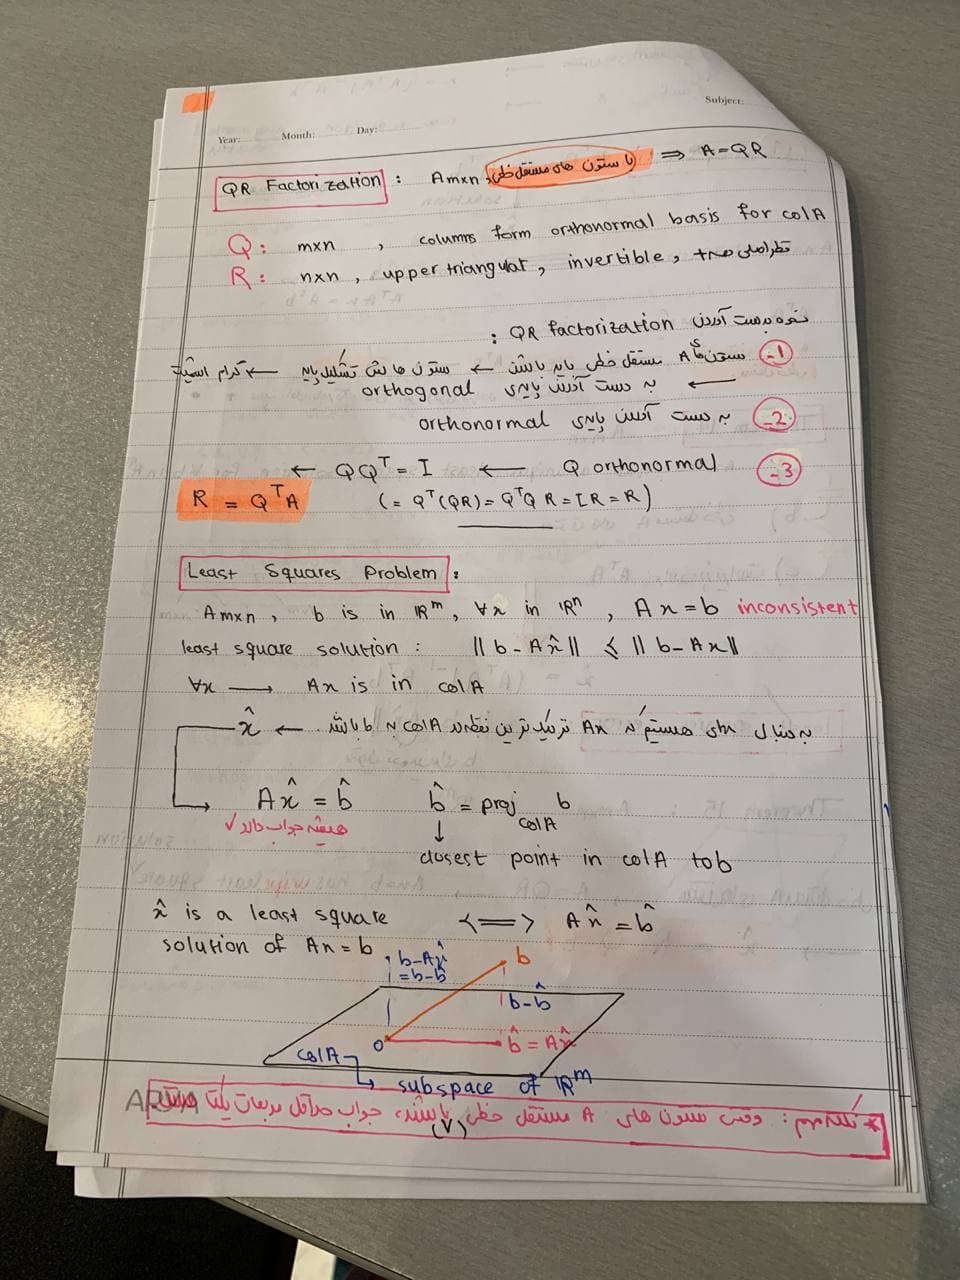 Subject:
Year: Month: Day:
QR Factorization : Amxn با ستون های مستقل خطی ⇒ A=QR
Q: mxn , columns form orthonormal basis for colA
R: nxn , upper triangular , invertible , قطر اصلی
نحوه بدست آوردن QR factorization :
1- ستون‌های A مستقل خطی باید باشن ← ستون هاش تشکیل پایه ← گرام اشمیت
← به دست آوردن پایه‌ی orthogonal
2- به دست آوردن پایه‌ی orthonormal
3- Q orthonormal ← QQᵀ = I ←
R = QᵀA (= Qᵀ(QR) = QᵀQ R = IR = R)
Least Squares Problem :
Amxn , b is in ℝᵐ , ∀x in ℝⁿ , Ax = b inconsistent
least square solution : ‖b-Ax̂‖ ≤ ‖b-Ax‖
∀x → Ax is in colA
به دنبال xای هستیم که Ax نزدیک ترین نقطه در colA به b باشد ← x̂
Ax̂ = b̂ b̂ = proj colA b
همیشه جواب دارد ✓ ↓
closest point in colA to b
x̂ is a least square <=> Ax̂ = b̂
solution of Ax=b
b-Ax̂ b
=b-b̂ b-b̂
0 b̂ = Ax̂
colA
subspace of ℝᵐ
* نکته مهم : وقتی ستون های A مستقل خطی باشند، جواب حداقل مربعات یکتا
ARIA
(7)